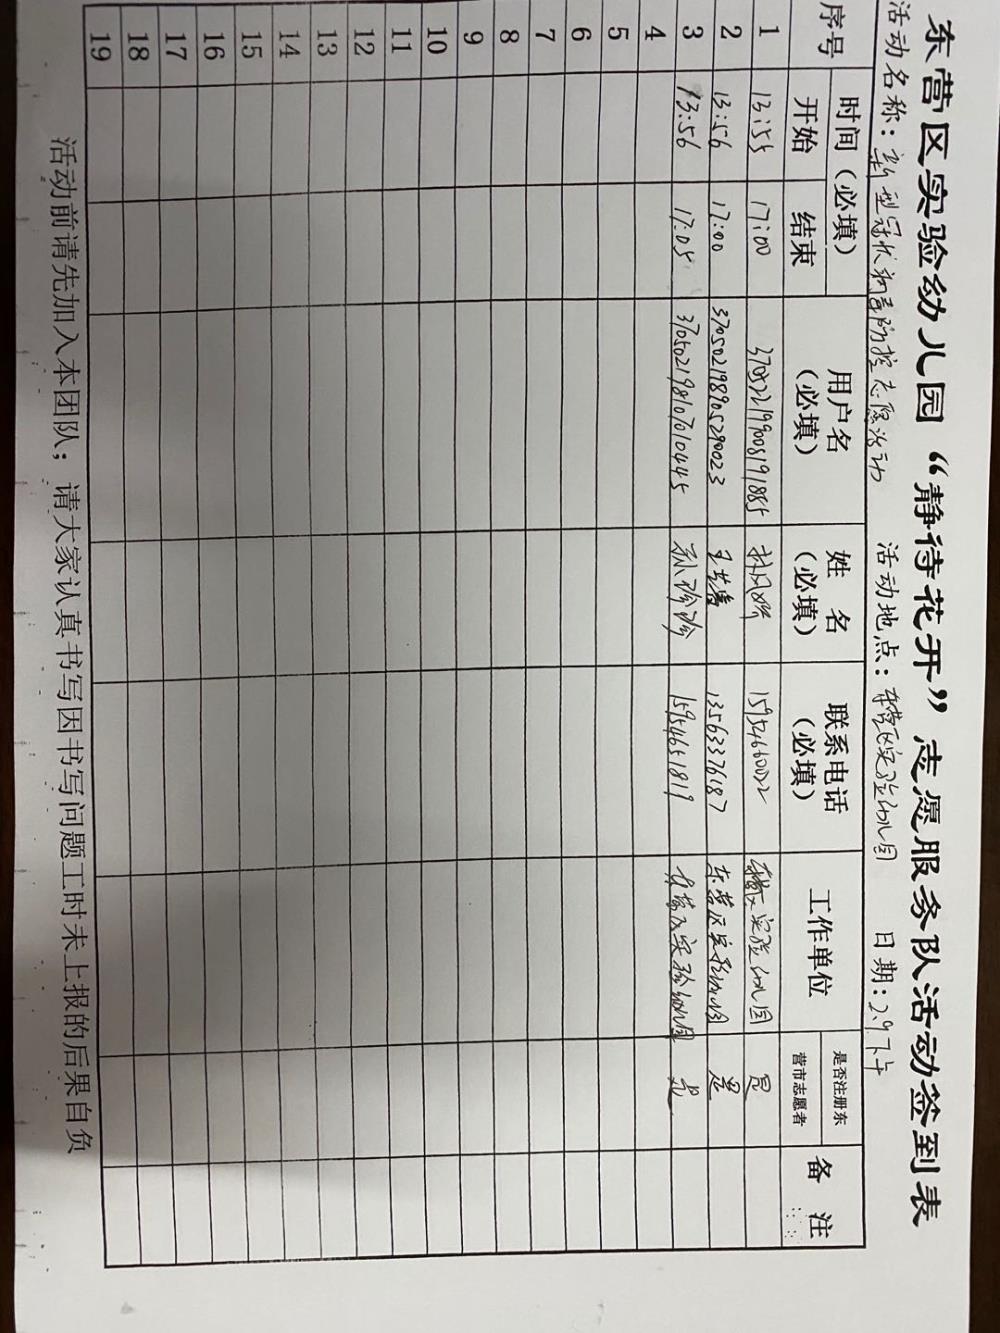 东营区实验幼儿园“静待花开”志愿服务队活动签到表
活动名称：新型冠状病毒防控志愿活动 活动地点：东营区实验幼儿园 日期：2.9下午
序号 时间（必填） 用户名（必填） 姓名（必填） 联系电话（必填） 工作单位 是否注册东营市志愿者 备注
开始 结束
1 13:55 17:00 370522199008191885 15954660022 东营区实验幼儿园 是
2 13:56 17:00 370502198905290023 13563376187 东营区实验幼儿园 是
3 13:56 17:05 370502198107010445 孙珍珍 15954651819 东营区实验幼儿园 是
4
5
6
7
8
9
10
11
12
13
14
15
16
17
18
19
活动前请先加入本团队；请大家认真书写因书写问题工时未上报的后果自负